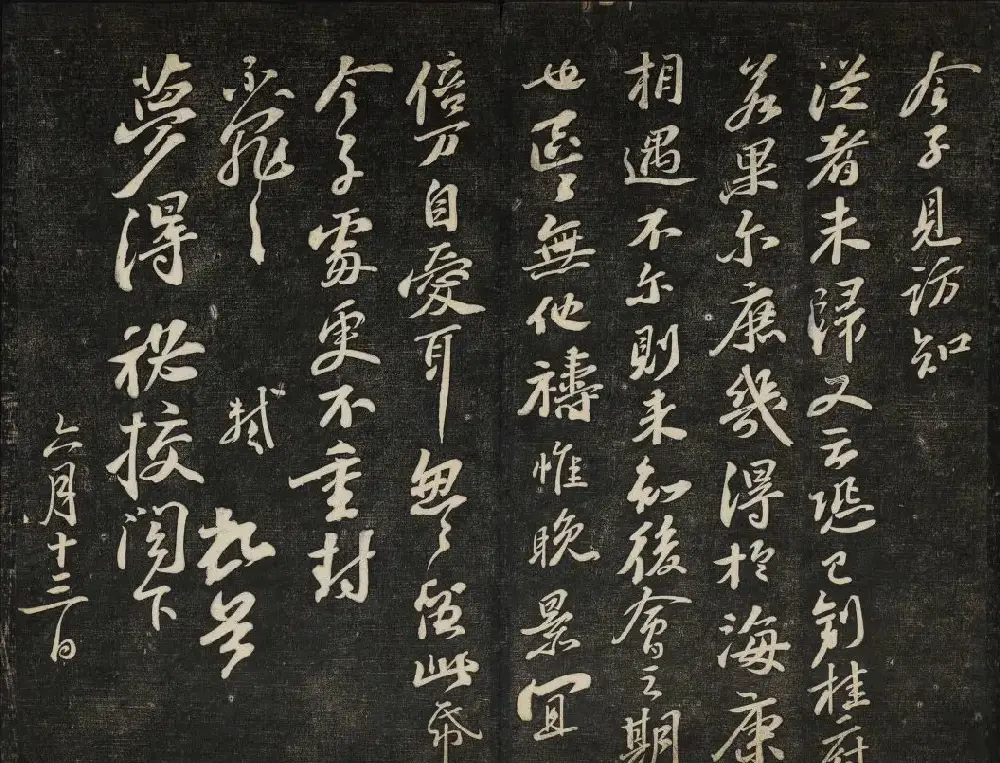 令子見訪知
從者未歸又云恐已到桂府
若果尔庶幾得於海康
相遇不尔則未知後會之期
也區區無他禱惟晚景宜
倍万自愛耳怱怱留此帋
令子處更不重封
不罪不罪 軾頓首
夢得秘校閣下
六月十三日